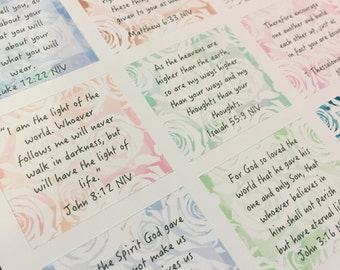 ll you,
about your
what you
about your
what you will
wear.
Luke 12:22 NIV
these
given to you as
Matthew 6:33 NIV
Therefore encourage
one another and build
each other up, just as
in fact you are
1 Thessalonians
"I am the light of the
world. Whoever
follows me will never
walk in darkness, but
will have the light of
life.
John 8:12 NIV
As the heavens are
higher than the earth,
so are my ways higher
than your ways and my
thoughts than your
thoughts.
Isaiah 55:9 NIV
For God so loved the
world that he gave his
one and only Son, that
whoever believes in
him shall not perish
but have eternal life
John 3:16 NIV
the Spirit God gave
not make us
gives us